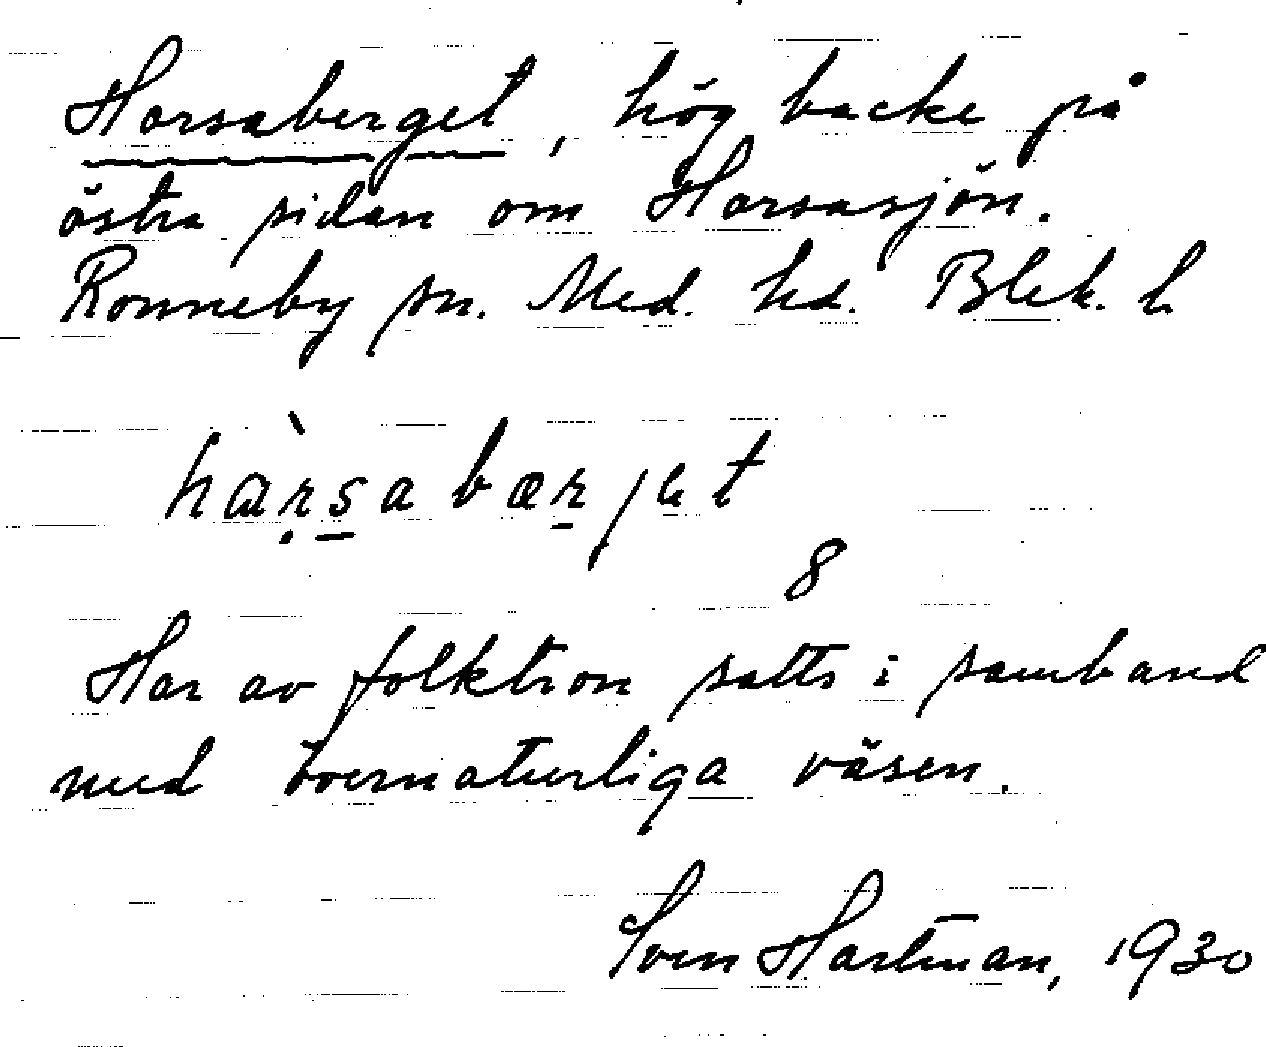 Horsaberget, hög backe på
östra sidan om Horsasjön.
Ronneby sn. Med. hd. Blek. l.
hàrsabærjet
8
Har av folktron satts i samband
med övernaturliga väsen.
Sven Hartman, 1930